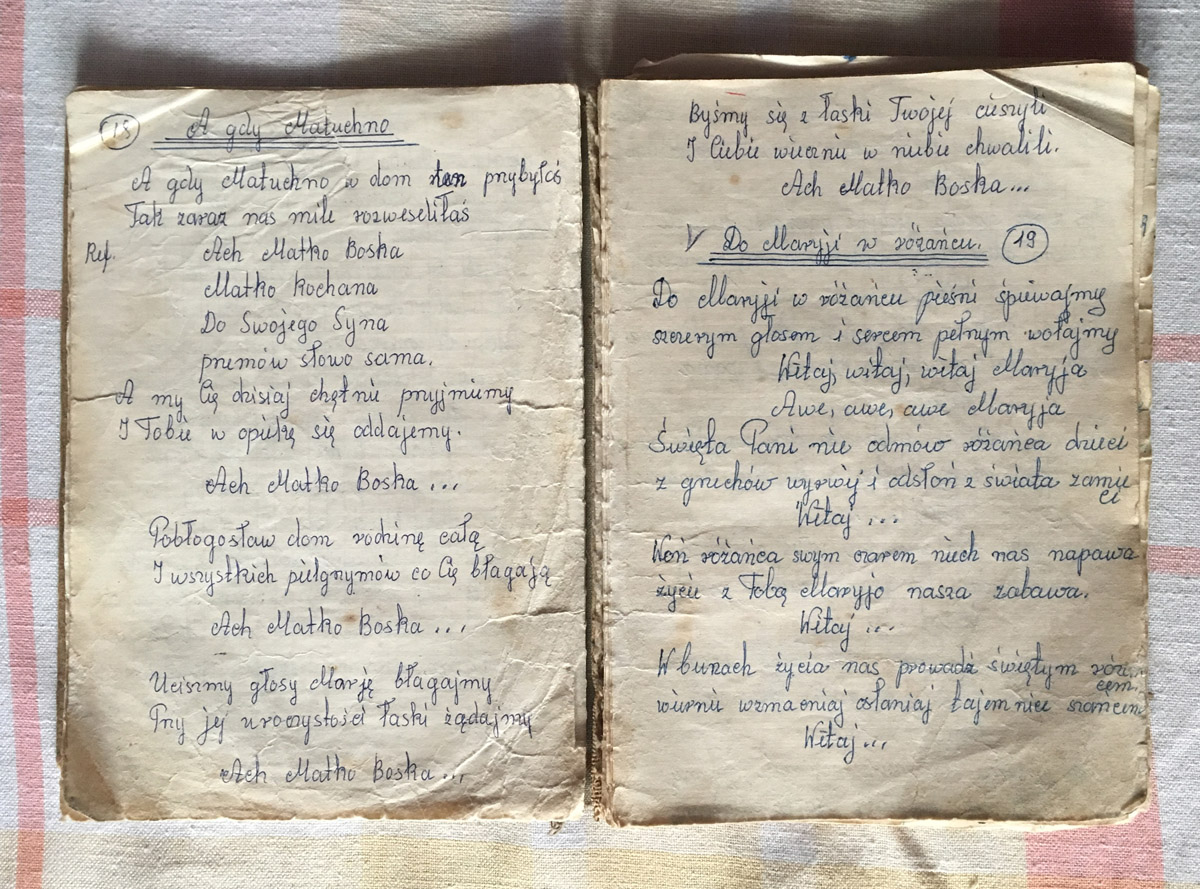 18 A gdy Matuchno
A gdy Matuchno w dom ten przybyłaś
Tak zaraz nas mile rozweseliłaś
Ref. Ach Matko Boska
Matko kochana
Do Swojego Syna
przemów słowo sama.
A my Cię dzisiaj chętnie przyjmiemy
I Tobie w opiekę się oddajemy.
Ach Matko Boska ...
Pobłogosław dom rodzinę całą
I wszystkich pielgrzymów co Cię błagają
Ach Matko Boska ...
Uciszmy głosy Marję błagajmy
Przy jej uroczystości łaski żądajmy
Ach Matko Boska ...
Byśmy się z łaski Twojej cieszyli
I Ciebie wiernie w niebie chwalili.
Ach Matko Boska ...
V Do Maryji w różańcu. 19
Do Maryji w różańcu pieśni śpiewajmy
szczerym głosem i sercem pełnym wołajmy
Witaj, witaj, witaj Maryja
Awe, awe, awe Maryja
Święta Pani nie odmów różańca dzieci
z grzechów wyrwij i odsłoń z świata zamie
ci
Witaj ...
Woń różańca swym czarem niech nas napawa
życie z Tobą Maryjo nasza zabawa.
Witaj ...
W burzach życia nas prowadź świętym róża
cem,
wiernie wzmacniaj osłaniaj tajemnic szańcem
Witaj ...